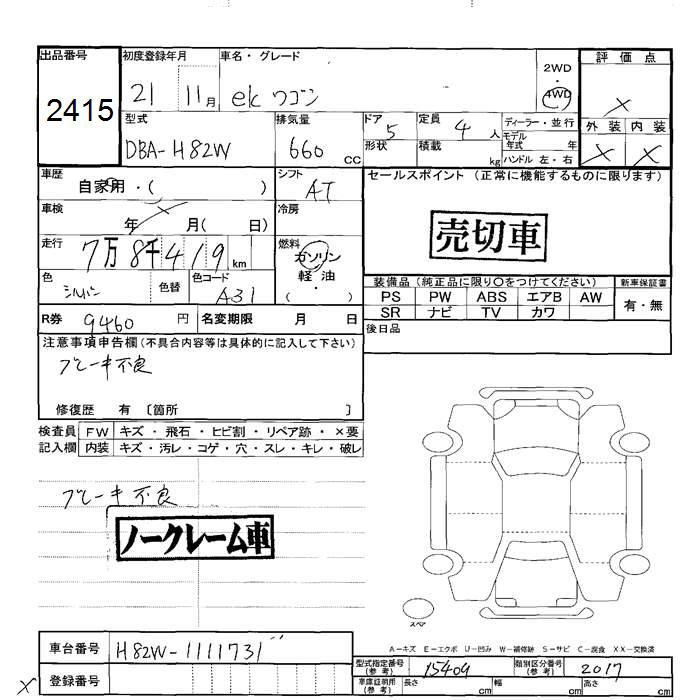 出品番号
2415
初度登録年月
21 11月
車名・グレード
ekワゴン
2WD
・
4WD
評価点
×
外装 内装
× ×
型式
DBA-H82W
排気量
660 CC
ドア
5
定員
4 人
ディーラー・並行
モデル年式 年
形状
積載 kg
ハンドル 左・右
車歴
自家用・( )
シフト
AT
セールスポイント (正常に機能するものに限ります)
売切車
車検
年 月( 日)
冷房
走行
7万8千419 km
燃料
ガソリン
・
軽油
( )
色
シルバー
色替
色コード
A31
装備品(純正品に限り〇をつけてください)
新車保証書
PS PW ABS エアB AW
有・無
SR ナビ TV カワ
R券 9460 円
名変期限 月 日
後日品
注意事項申告欄(不具合内容等は具体的に記入して下さい)
ブレーキ不良
修復歴 有 〔箇所 〕
検査員記入欄
FW キズ・飛石・ヒビ割・リペア跡・×要
内装 キズ・汚レ・コゲ・穴・スレ・キレ・破レ
ブレーキ不良
ノークレーム車
スペア
A-キズ E-エクボ U-凹み W-補修跡 S-サビ C-腐食 XX-交換済
車台番号
H82W-1111731
型式指定番号(参考)
15409
類別区分番号(参考)
2017
×
登録番号
車庫証明用(参考)
長さ cm
幅 cm
高さ cm